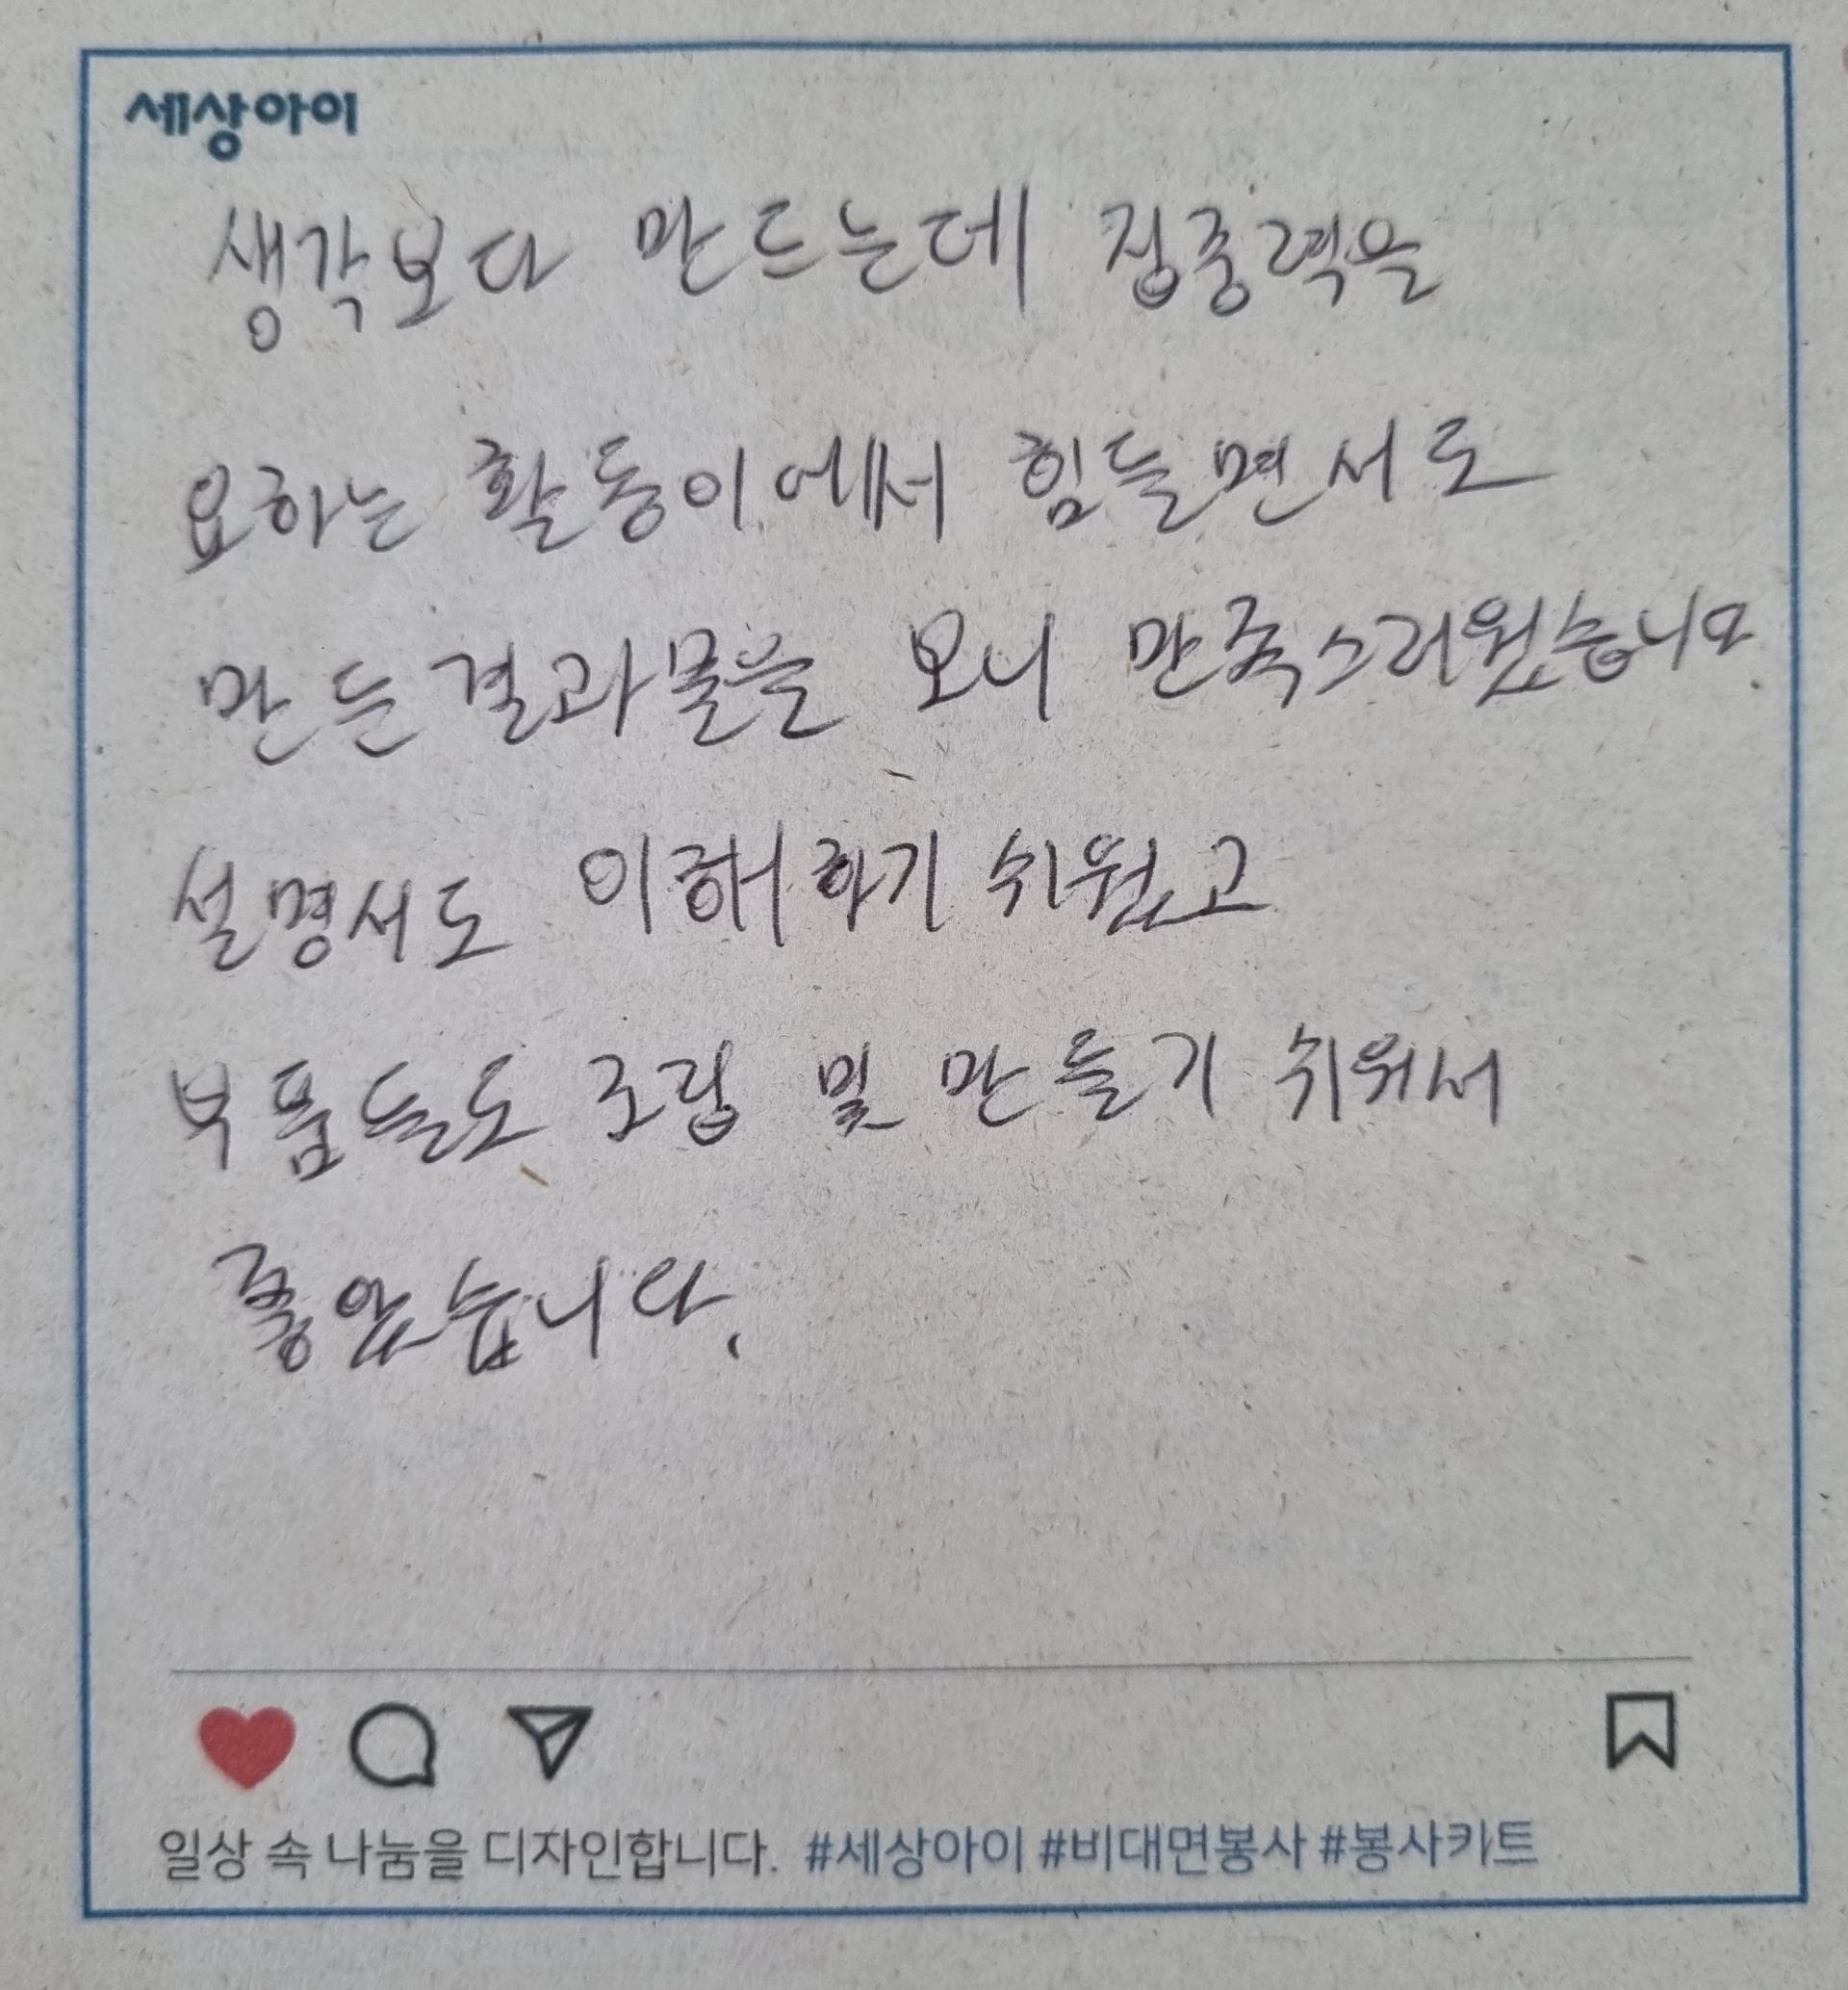 세상아이
생각보다 만드는데 집중력을
요하는 활동이에서 힘들면서도
만든결과물을 보니 만족스러웠습니다.
설명서도 이해하기 쉬웠고
부품들도 조립 및 만들기 쉬워서
좋았습니다.
일상 속 나눔을 디자인합니다. #세상아이 #비대면봉사 #봉사키트